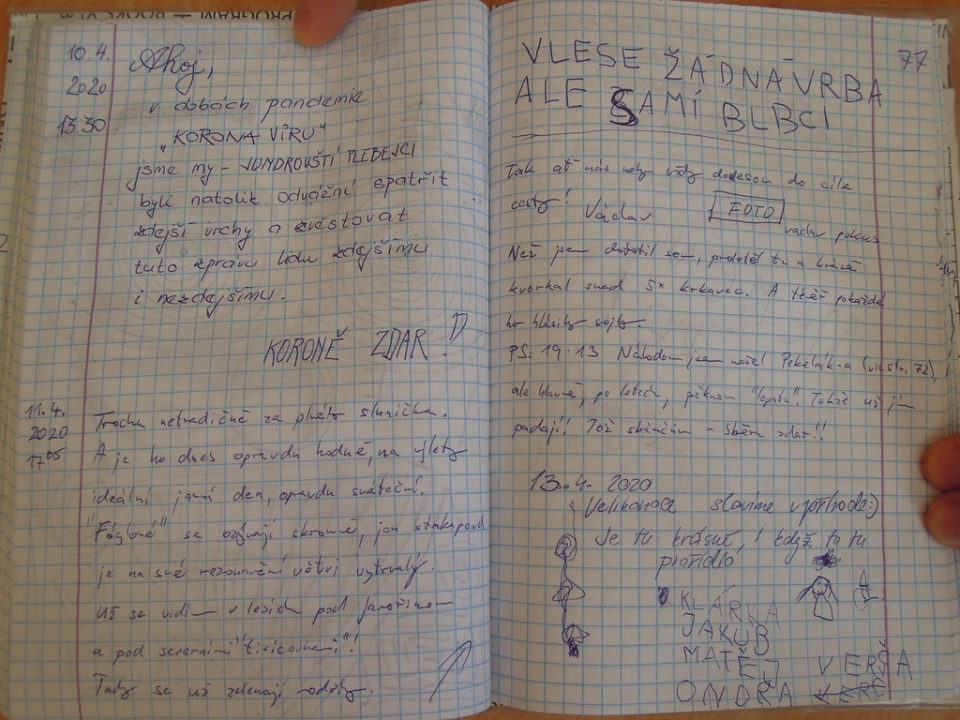 10.4.
2020
13.30
Ahoj,
v dobách pandemie
„KORONA VIRU"
jsme my - JUNDROVŠTÍ PLEBEJCI
byli natolik odvážní spatřit
zdejší vrchy a zvěstovat
tuto zprávu lidu zdejšímu
i nezdejšímu.
KORONĚ ZDAR!
11.4.
2020
17 05
Trochu netradičně za plného sluníčka.
A je ho dnes opravdu hodně, na výlety
ideální jarní den, opravdu sváteční.
se ozývají skromně, jen strakapoud
je na své rezonanční větvi vytrvalý.
už se vidím v lesích pod Javořinou
a pod severními "tisícovkami"!
Tady se už zelenají
77
VLESE ŽÁDNÁ VRBA
ALE SAMÍ BLBCI
Tak ať nás nohy vždy donesou do cíle
cesty! Václav
FOTO
Než jsem dofotil sem, proletěl tu a krásně
kvorkal snad 5x krkavec. A téěř pokaždé
ho hlásily sojky.
PS. 19:13 Náhodou jsem našel Pekelník-a (viz str. 72),
ale hlavně, po letech, pěknou "lopatu". Takže už jim
padají! Tož sběračům - sběru zdar!!
13.4. 2020
Velikonoce slavíme v přírodě:)
Je tu krásně, i když to tu
KLÁRKA
JAKUB
MATĚJ VERČA
ONDRA